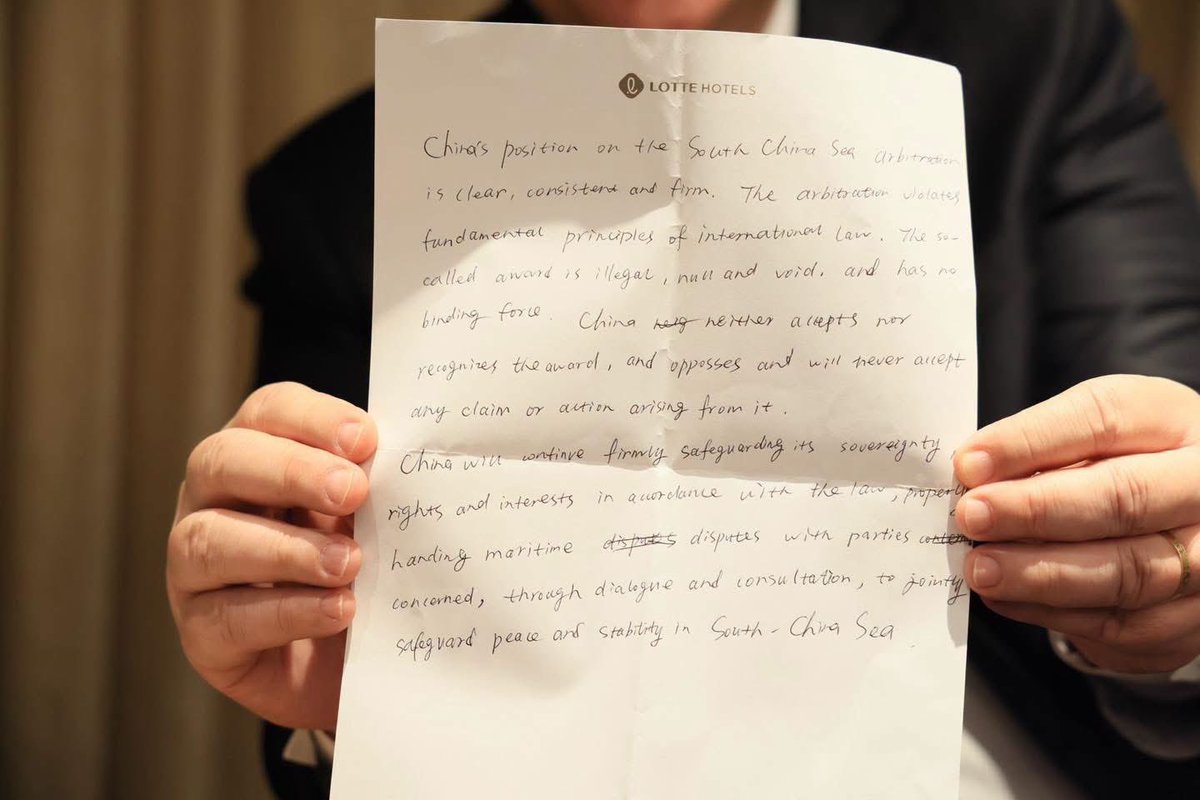 LOTTE HOTELS
China's position on the South China Sea arbitration
is clear, consistent and firm. The arbitration violates
fundamental principles of international law. The so-
called award is illegal, null and void. and has no
binding force. China neither accepts nor
recognizes the award, and opposses and will never accept
any claim or action arising from it.
China will continue firmly safeguarding its sovereignty,
rights and interests in accordance with the law, properly
handing maritime disputes disputes with parties
concerned, through dialogue and consultation, to jointly
safeguard peace and stability in South-China Sea